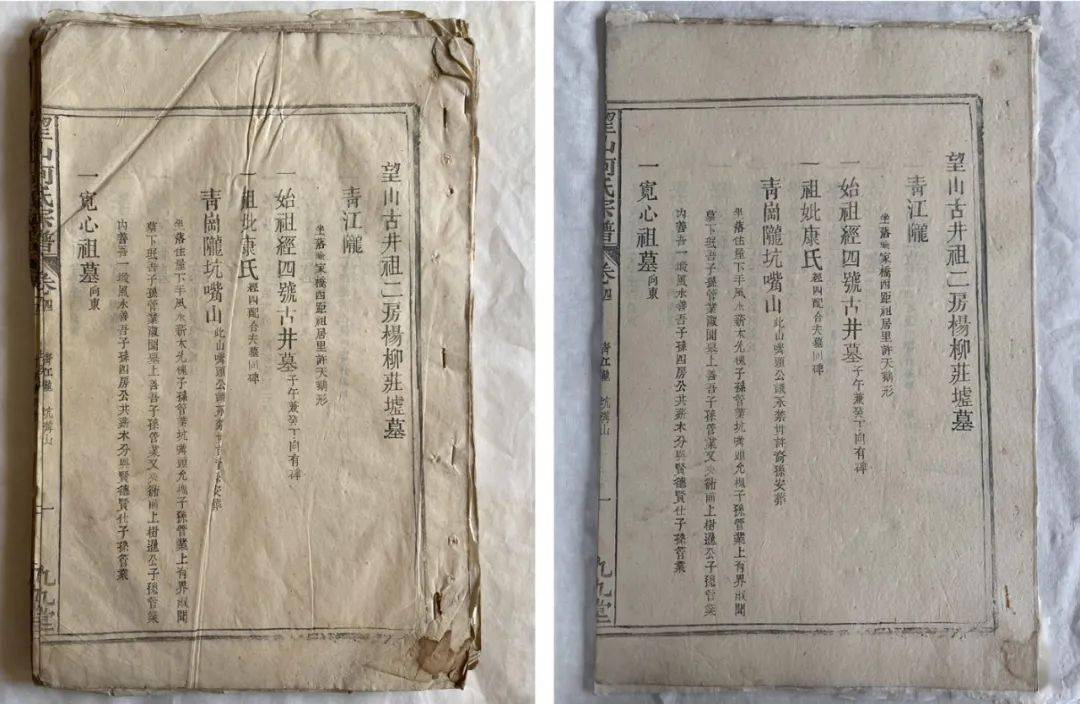 望山古井祖二房楊柳莊墟墓
青江隴
坐落家橋西距祖居里許天鵝形
一始祖經四號古井墓子午兼癸丁向有碑
一祖妣康氏經四配合夫墓同碑
青崗隴坑嘴山此山嘴頭公議永禁
坐落住屋下手風水薪木允槐子孫管業坑嘴頭允槐子孫管業上有界
墓下珉吾子孫管業上善吾子孫管業又前上樹遜公子孫管業
內善吾一塅風水善吾子孫四房公共薪木分與賢德賢仕子孫管業
一寬心祖墓向東
望山何氏宗譜
卷四
青江隴
坑嘴山
一
九九堂
望山古井祖二房楊柳莊墟墓
青江隴
坐落家橋西距祖居里許天鵝形
一始祖經四號古井墓子午兼癸丁向有碑
一祖妣康氏經四配合夫墓同碑
青崗隴坑嘴山此山嘴頭公議永禁裔孫安葬
坐落住屋下手風水薪木允槐子孫管業坑嘴頭允槐子孫管業上有界
墓下珉吾子孫管業上善吾子孫管業又前上樹遜公子孫管業
內善吾一塅風水善吾子孫四房公共薪木分與賢德賢仕子孫管業
一寬心祖墓向東
望山何氏宗譜
卷四
青江隴
坑嘴山
一
九九堂